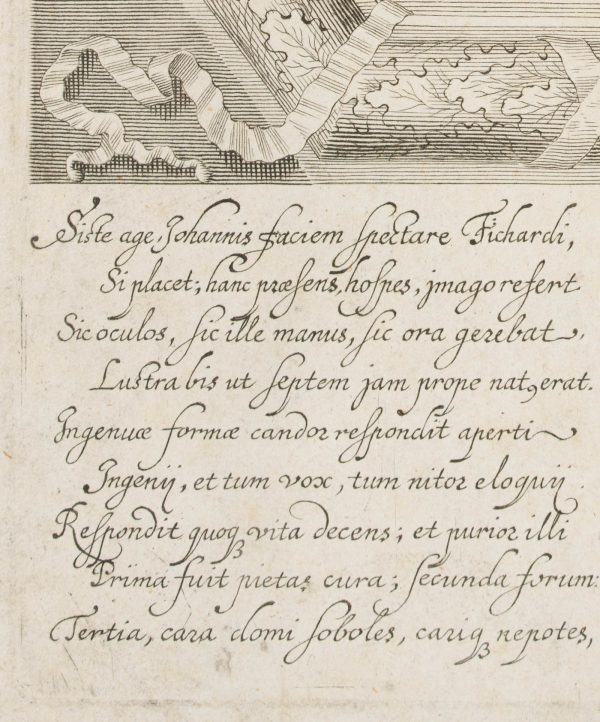 Siste age, Johannis faciem spectare Fichardi,
Si placet; hanc præsens, hospes, jmago refert
Sic oculos, sic ille manus, sic ora gerebat.
Lustra bis ut septem jam prope natꝰ erat.
Ingenuæ formæ candor respondit aperti
Ingenij, et tum vox, tum nitor eloquij.
Respondit quoqꝫ vita decens; et purior illi
Prima fuit pietas cura; secunda forum:
Tertia, cara domi soboles, cariqꝫ nepotes,